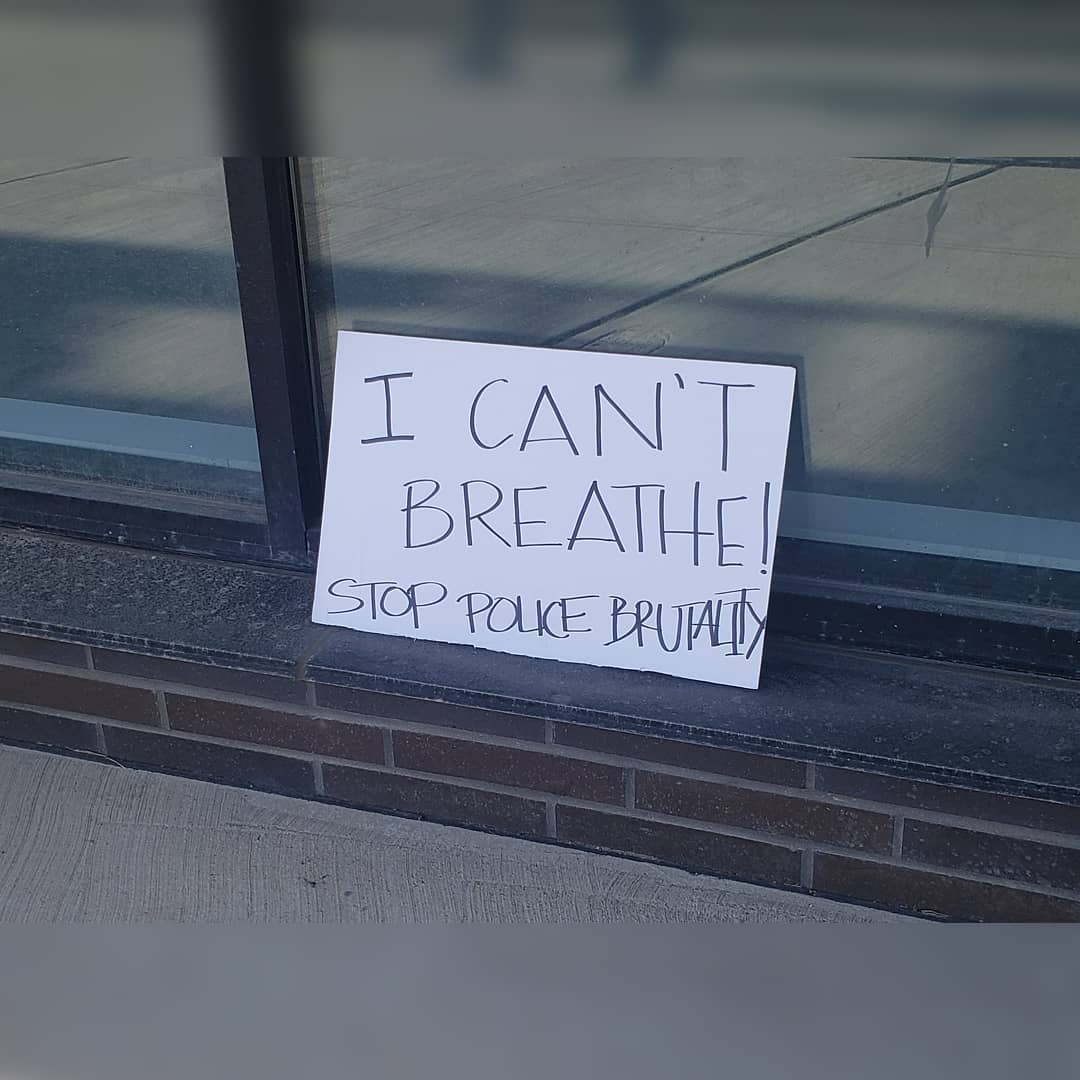 I CAN'T
BREATHE!
STOP POLICE BRUTALITY